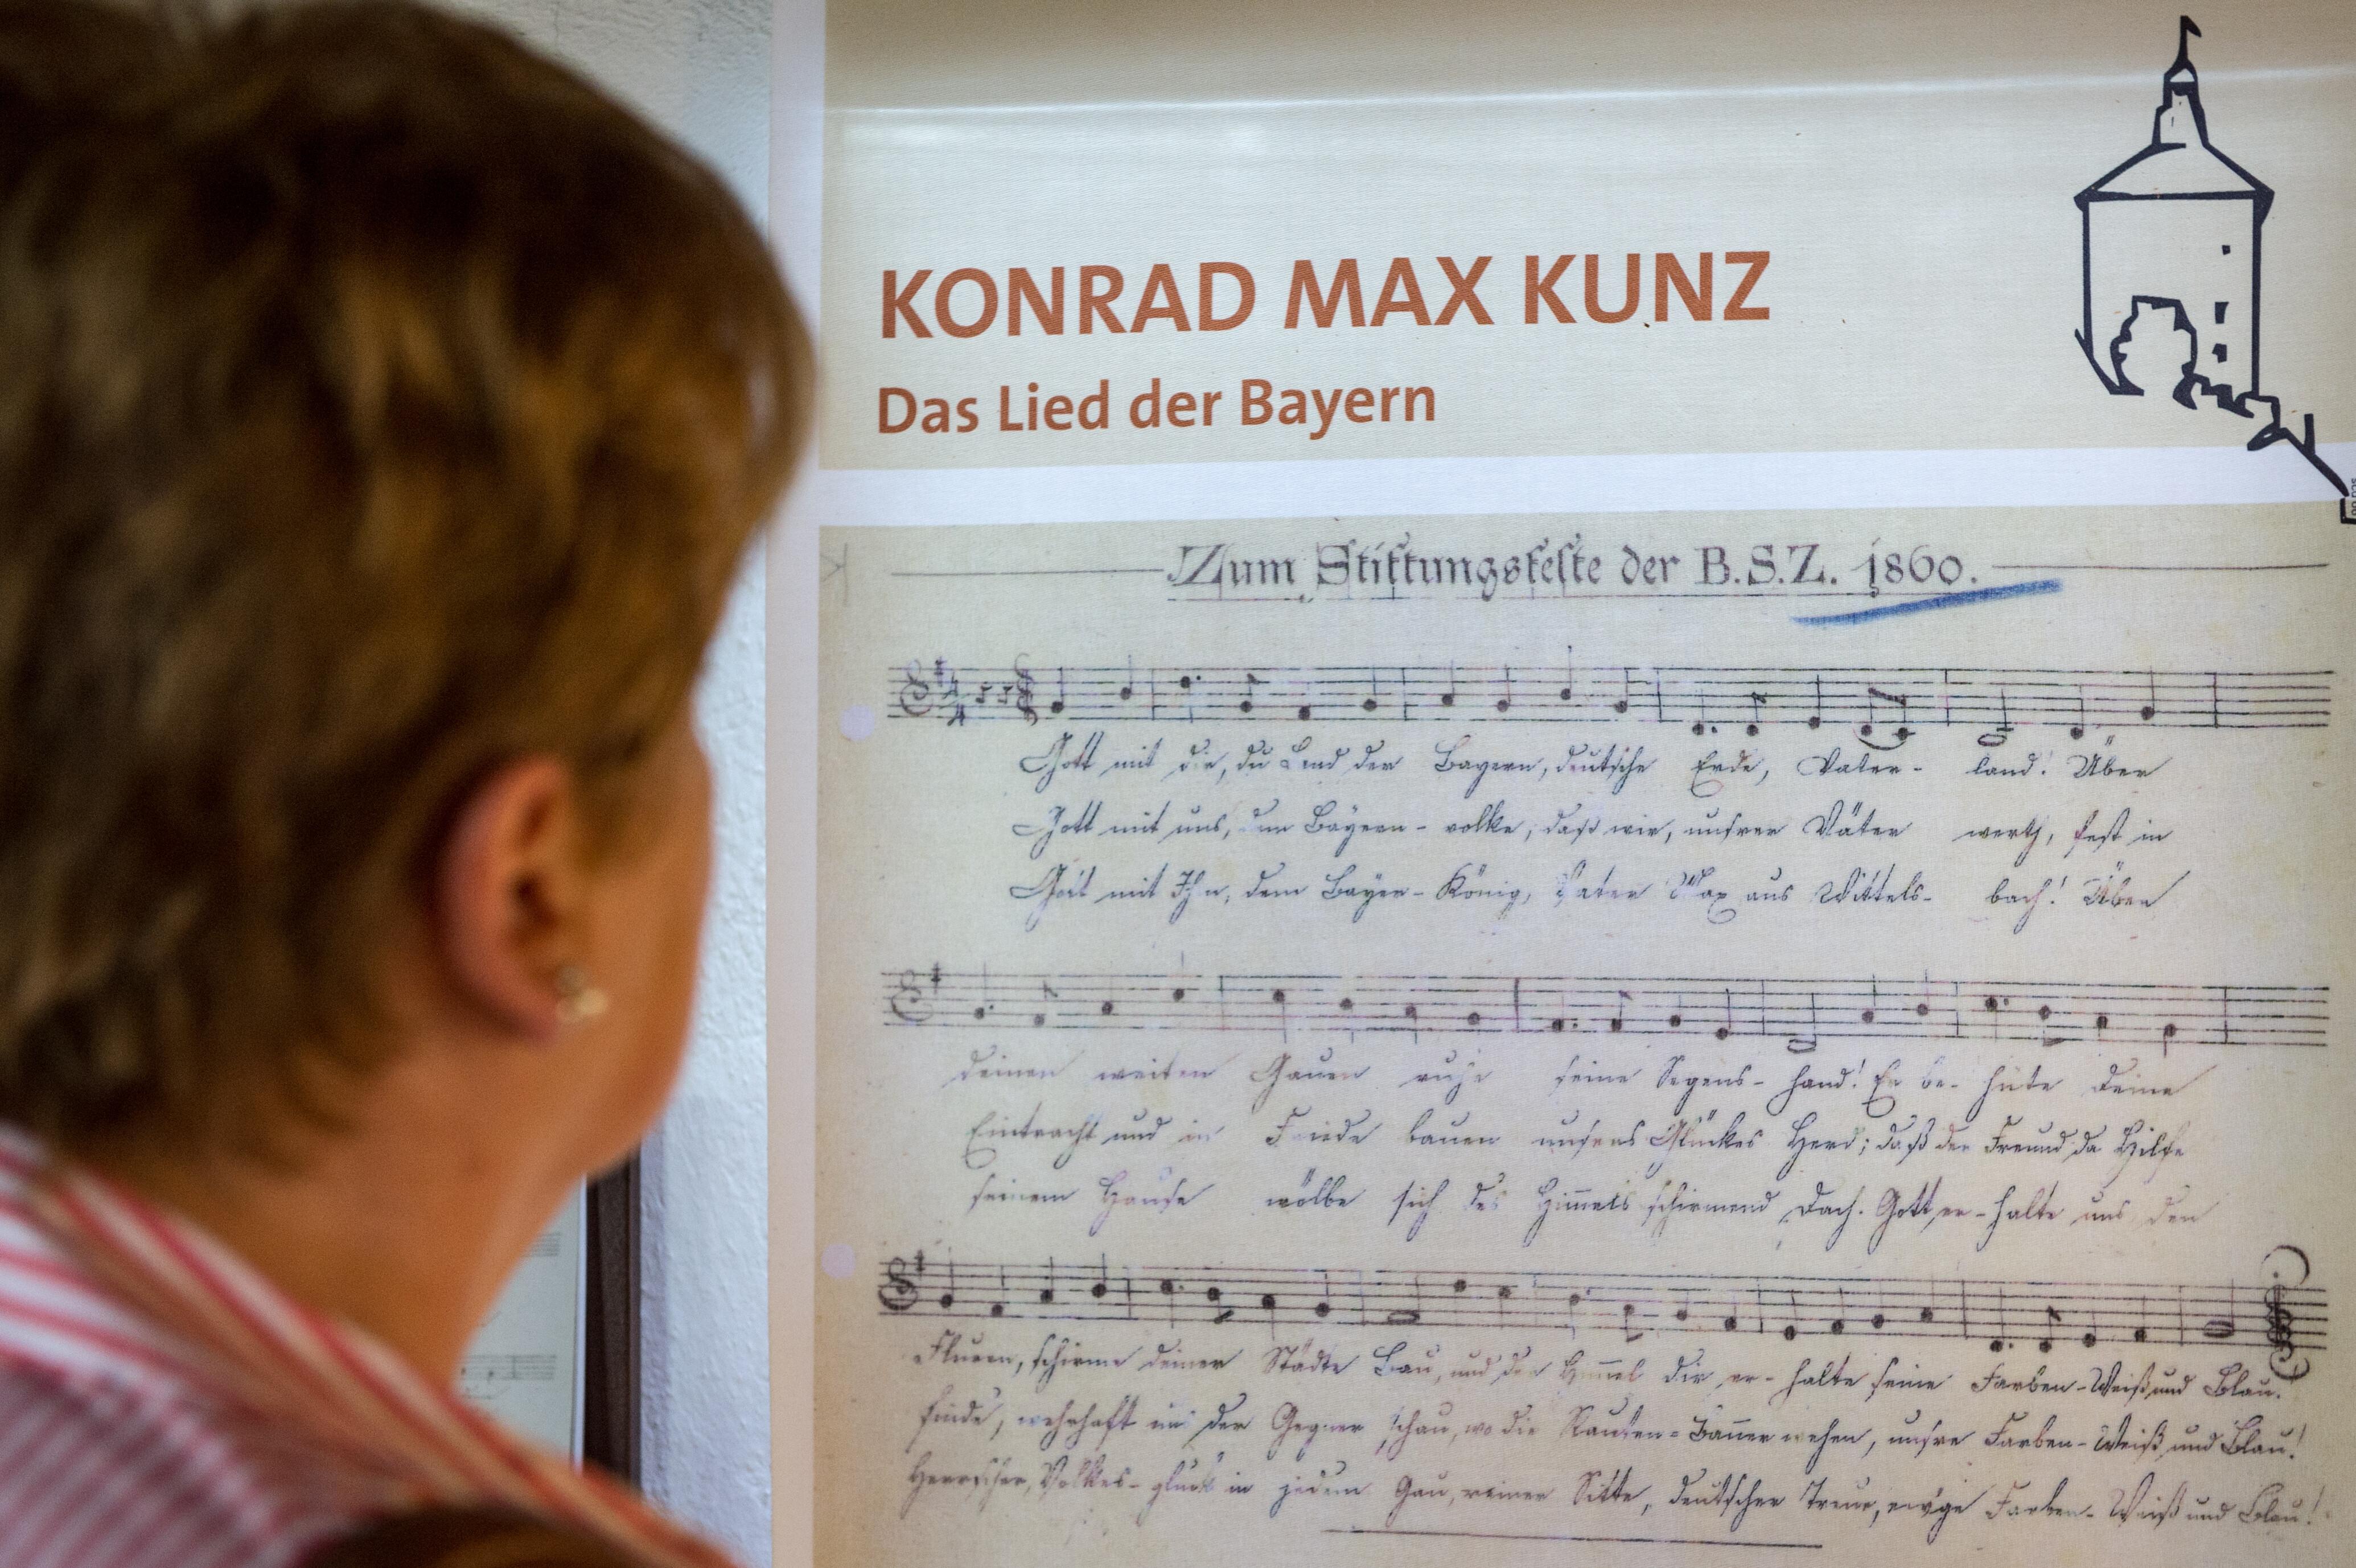 KONRAD MAX KUNZ
Das Lied der Bayern
Zum Stiftungsfeste der B.S.Z. 1860.
Gott mit dir, du Land der Bayern, deutsche Erde, Vater- land! Über
Gott mit uns, dem Bayern- volke, daß wir, unsrer Väter werth, fest in
Gott mit Ihm, dem Bayer- König, Vater Max aus Wittels- bach! Über
deinen weiten Gauen ruhe seine Segens- hand! Er be- hüte deine
Eintracht und in Friede bauen unseres Glückes Herd; daß der Freund da Hilfe
seinem Hause wölbe sich des Him̅els schirmend Dach. Gott er- halte uns den
Fluren, schirme deiner Städte Bau, und der Him̅el dir er- halte seine Farben- Weiß und Blau!
finde, wehrhaft uns der Gegner schau, wo die Rauten= Ban̅er wehen, unsre Farben- Weiß und Blau!
Herrscher, Volkes- glück in jedem Gau, reiner Sitte, deutscher Treue, ew'ge Farben- Weiß und Blau!